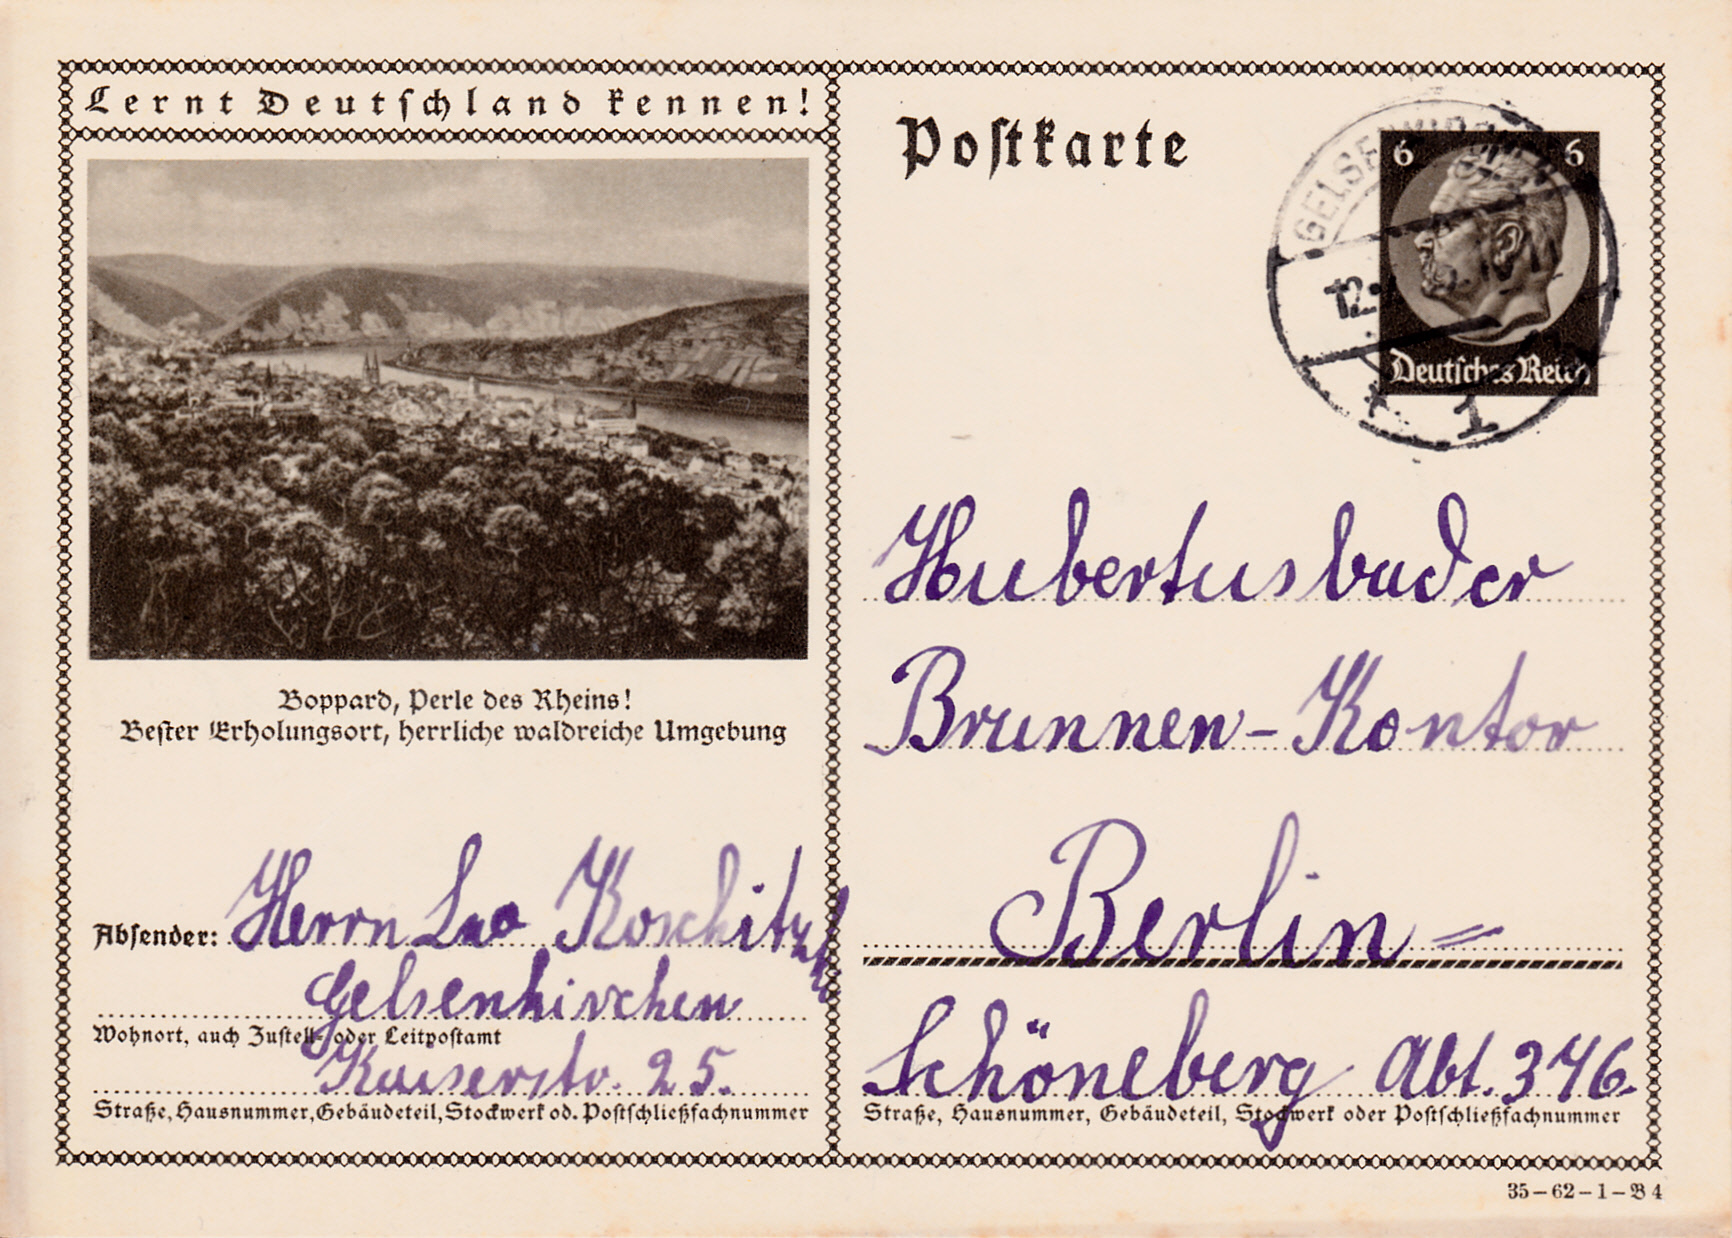 Lernt Deutschland kennen!
Boppard, Perle des Rheins!
Bester Erholungsort, herrliche waldreiche Umgebung
Absender: Herrn Leo Koschitzki
Gelsenkirchen
Wohnort, auch Zustell- oder Leitpostamt
Kaiserstr. 25.
Straße, Hausnummer, Gebäudeteil, Stockwerk od. Postschließfachnummer
Postkarte
6 6
Deutsches Reich
GELSENKIRCHEN
12.
* 1
Hubertusbader
Brunnen-Kontor
Berlin=
Schöneberg Abt. 346.
Straße, Hausnummer, Gebäudeteil, Stockwerk oder Postschließfachnummer
35-62-1-B 4